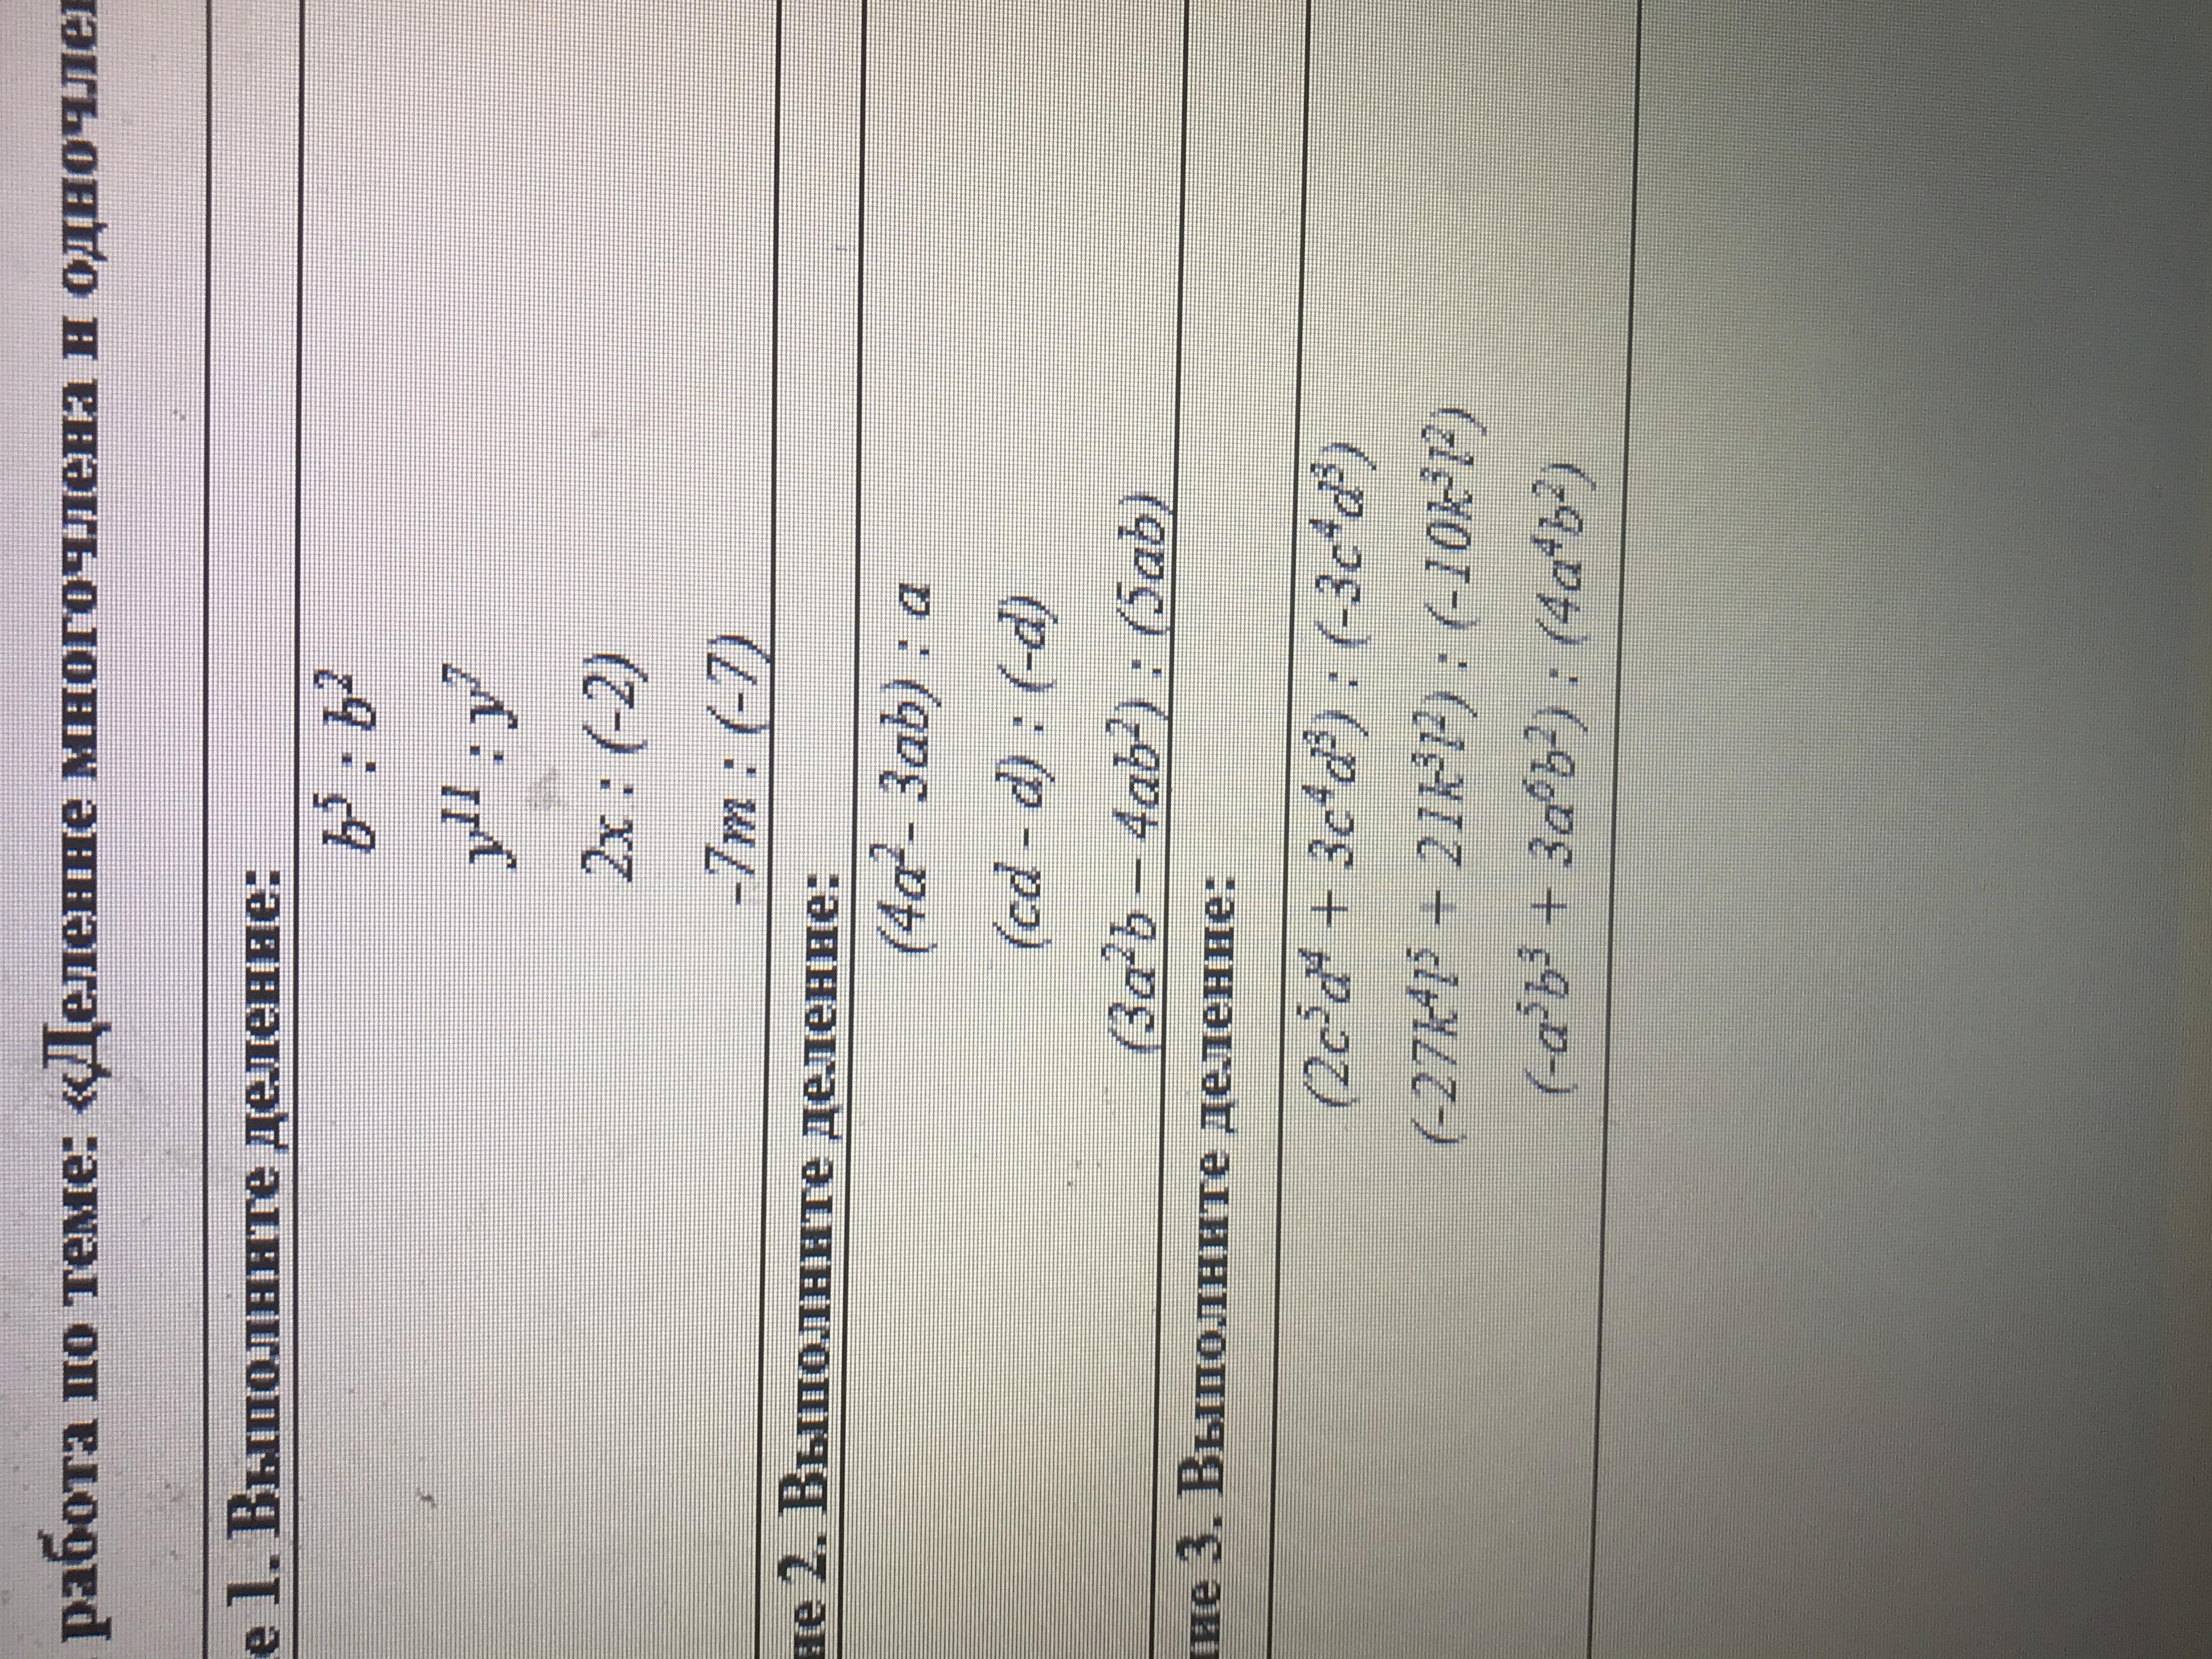 работа по теме: «Деление многочлена и одночлен
е 1. Выполните деление:
b⁵ : b²
y¹¹ : y⁷
2x : (-2)
-7m : (-7)
ие 2. Выполните деление:
(4a² - 3ab) : a
(cd - d) : (-d)
(3a²b – 4ab²) : (5ab)
ние 3. Выполните деление:
(2c⁵d⁴ + 3c⁴d³) : (-3c⁴d³)
(-27k⁴l⁵ + 21k³l²) : (-10k³l²)
(-a⁵b³ + 3a⁶b²) : (4a⁴b²)